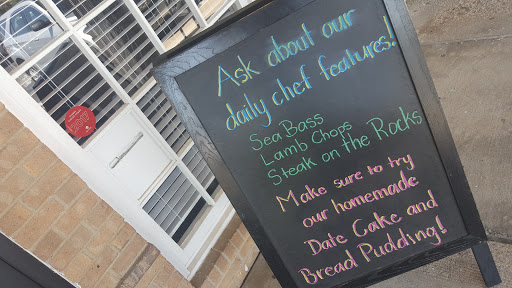 Ask about our
daily chef features!
Sea Bass
Lamb Chops
Steak on the Rocks
Make sure to try
our homemade
Date Cake and
Bread Pudding!